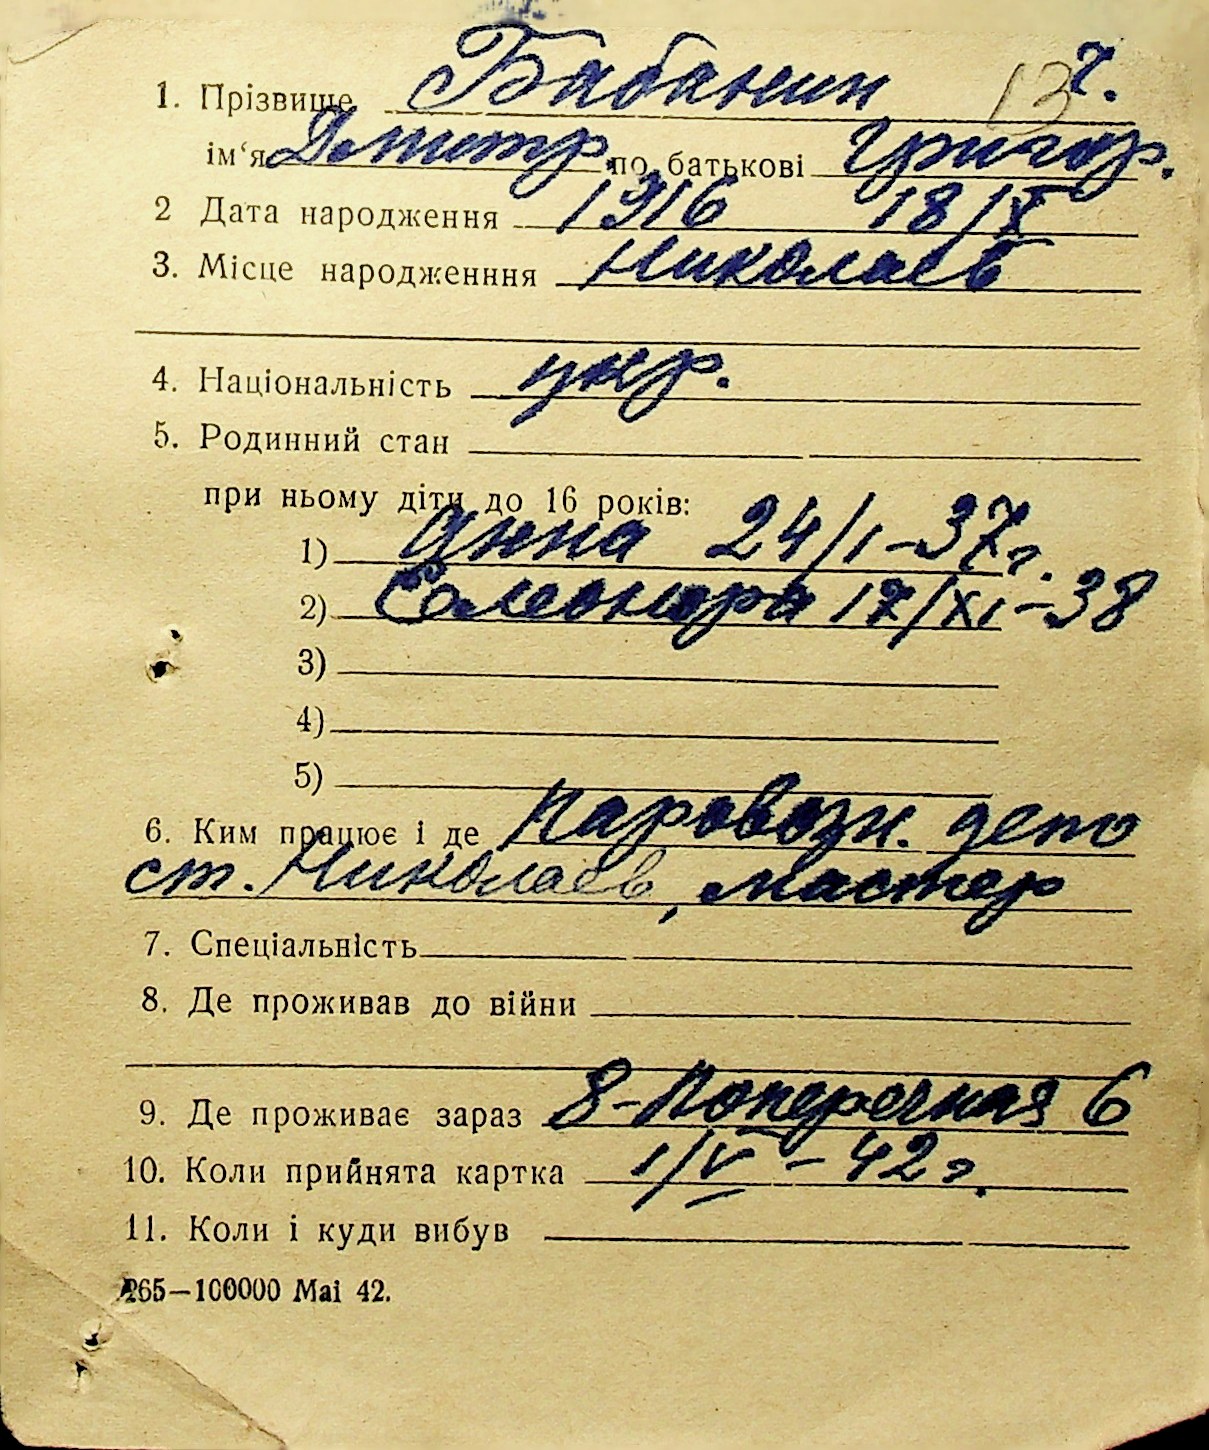 1. Прізвище Бабанин 13 7.
ім‘я Дмитр. по батькові Григор.
2 Дата народження 1916 18/X
3. Місце народженння Николаев
4. Національність укр.
5. Родинний стан
при ньому діти до 16 років:
1) Анна 24/I-37г.
2) Елеонора 17/XI-38
3)
4)
5)
6. Ким працює і де Паровозн. депо
ст. Николаев, мастер
7. Спеціальність
8. Де проживав до війни
9. Де проживає зараз 8-Поперечная 6
10. Коли прийнята картка 1/V-42г.
11. Коли і куди вибув
265—100000 Mai 42.